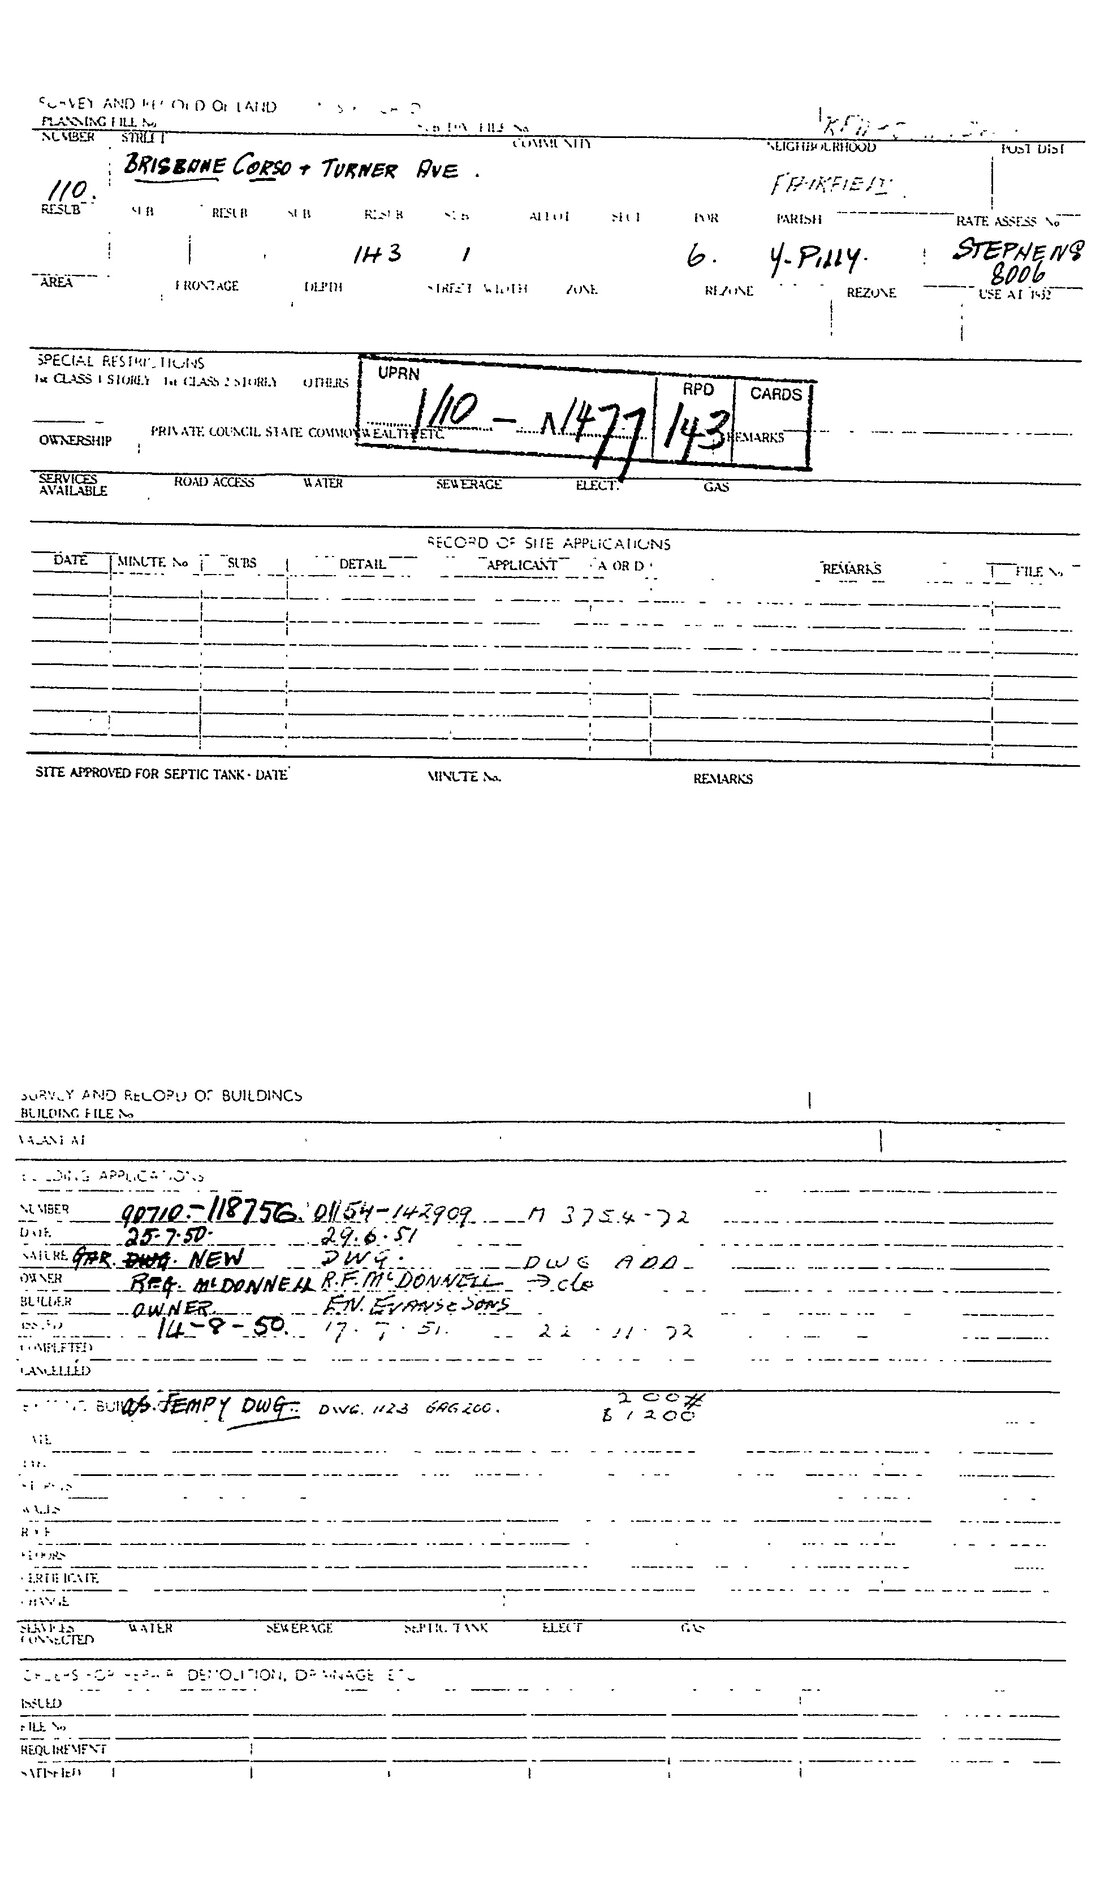 SURVEY AND RECORD OF LAND
PLANNING FILE No SUB DIV. FILE No
NUMBER STREET COMMUNITY NEIGHBOURHOOD POST DIST
BRISBANE CORSO + TURNER AVE .
110. FAIRFIELD
RESUB SUB RESUB SUB RESUB SUB ALLOT SECT POR PARISH RATE ASSESS No
143 1 6. Y-PILLY. STEPHENS
8006
AREA FRONTAGE DEPTH STREET WIDTH ZONE REZONE REZONE USE AT 1952
SPECIAL RESTRICTIONS
1st CLASS 1 STORLY 1st CLASS 2 STORLY OTHERS
UPRN RPD CARDS
1110 - N1477 143
OWNERSHIP PRIVATE COUNCIL STATE COMMONWEALTH ETC. REMARKS
SERVICES AVAILABLE ROAD ACCESS WATER SEWERAGE ELECT. GAS
RECORD OF SITE APPLICATIONS
DATE MINUTE No SUBS DETAIL APPLICANT A OR D REMARKS FILE No
SITE APPROVED FOR SEPTIC TANK - DATE MINUTE No. REMARKS
SURVEY AND RECORD OF BUILDINGS
BUILDING FILE No
VACANT AT
BUILDING APPLICATIONS
NUMBER 90710-118756. D1154-142909 M 3754-72
DATE 25-7-50. 29.6.51
NATURE GAR. DWG. NEW DWG. DWG ADD
OWNER REG. McDONNELL R.F. McDONNELL → c/o
BUILDER OWNER. F.N. EVANS & SONS
ISSUED 14-8-50. 17.7.51. 22.11.72
COMPLETED
CANCELLED
EXISTING BUILDINGS as TEMPY DWG. DWG. 1123 GAG 200. 200#
$1200
DATE
WALLS
ROOF
FLOORS
CERTIFICATE
CHANGE
SERVICES CONNECTED WATER SEWERAGE SEPTIC TANK ELECT GAS
ORDERS FOR REPAIR, DEMOLITION, DRAINAGE ETC
ISSUED
FILE No
REQUIREMENT
SATISFIED